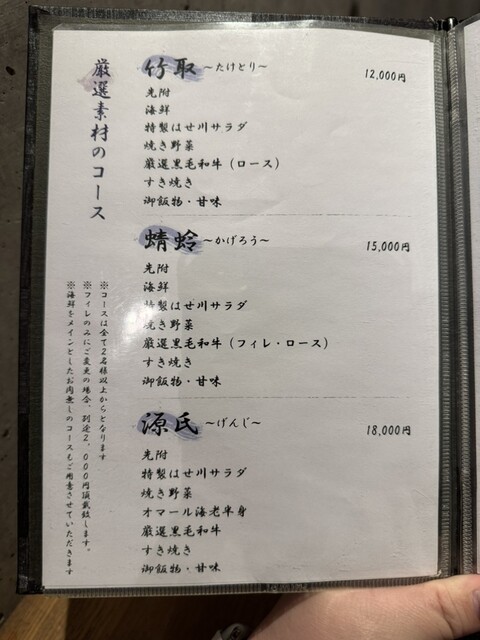 厳選素材のコース
竹取 〜たけとり〜 12,000円
先附
海鮮
特製はせ川サラダ
焼き野菜
厳選黒毛和牛（ロース）
すき焼き
御飯物・甘味
蜻蛉 〜かげろう〜 15,000円
先附
海鮮
特製はせ川サラダ
焼き野菜
厳選黒毛和牛（フィレ・ロース）
すき焼き
御飯物・甘味
源氏 〜げんじ〜 18,000円
先附
特製はせ川サラダ
焼き野菜
オマール海老半身
厳選黒毛和牛
すき焼き
御飯物・甘味
※コースは全て2名様以上からとなります
※フィレのみにご変更の場合、別途2,000円頂戴致します。
※海鮮をメインとしたお肉無しのコースもご用意させていただきます